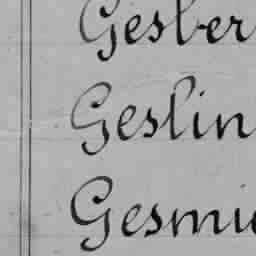 Gesber
Geslin
Gesmi